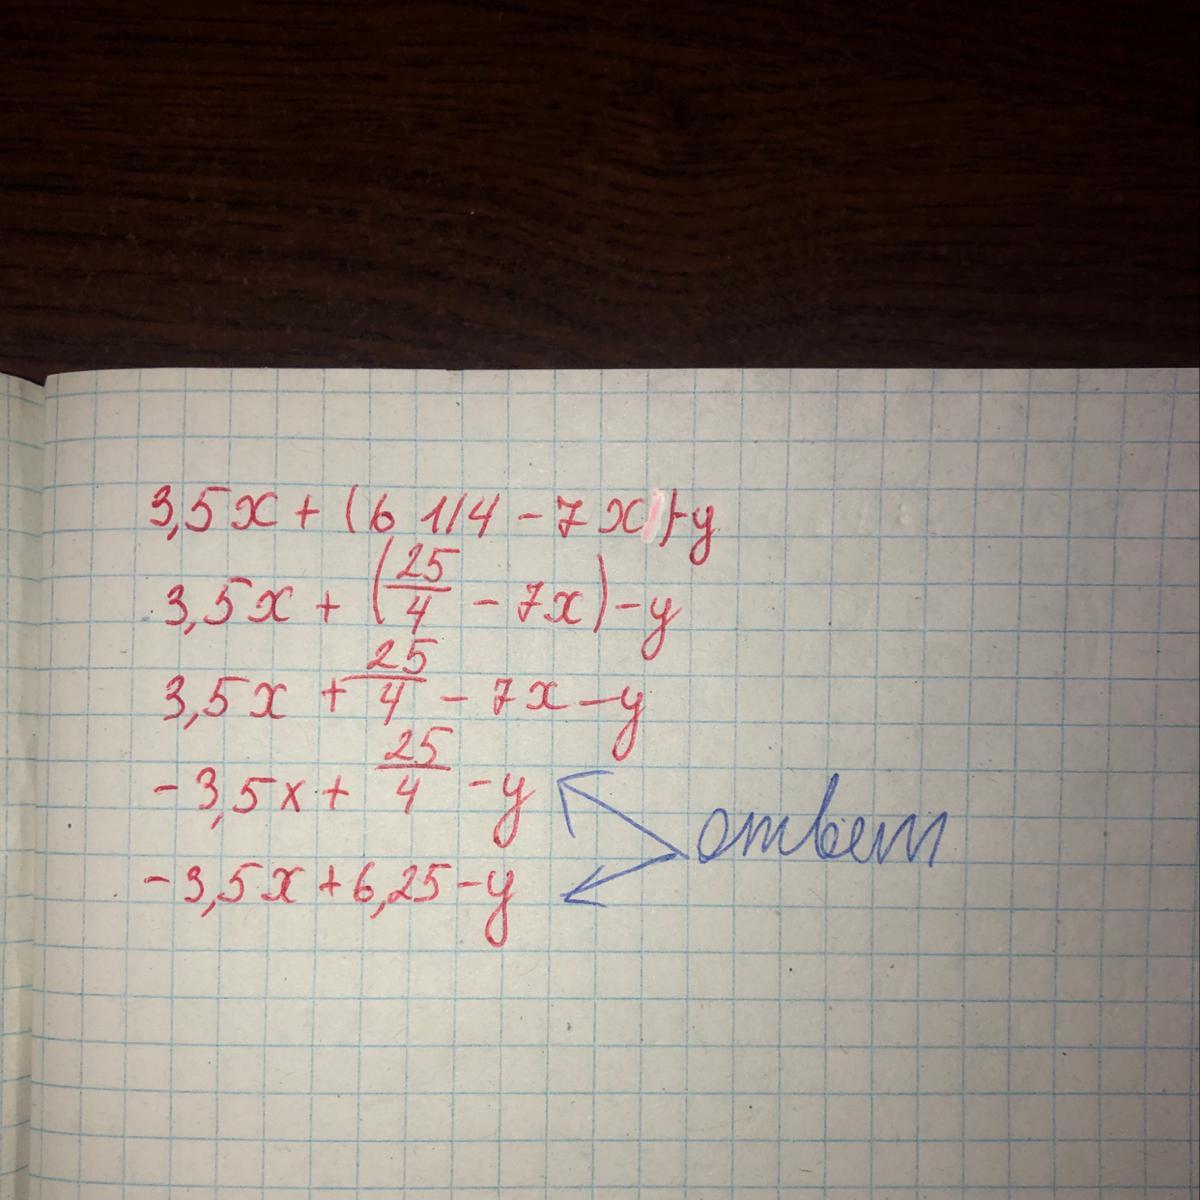 3,5x + (6 1/4 - 7x) - y
3,5x + (25/4 - 7x) - y
3,5x + 25/4 - 7x - y
- 3,5x + 25/4 - y
- 3,5x + 6,25 - y
ответ